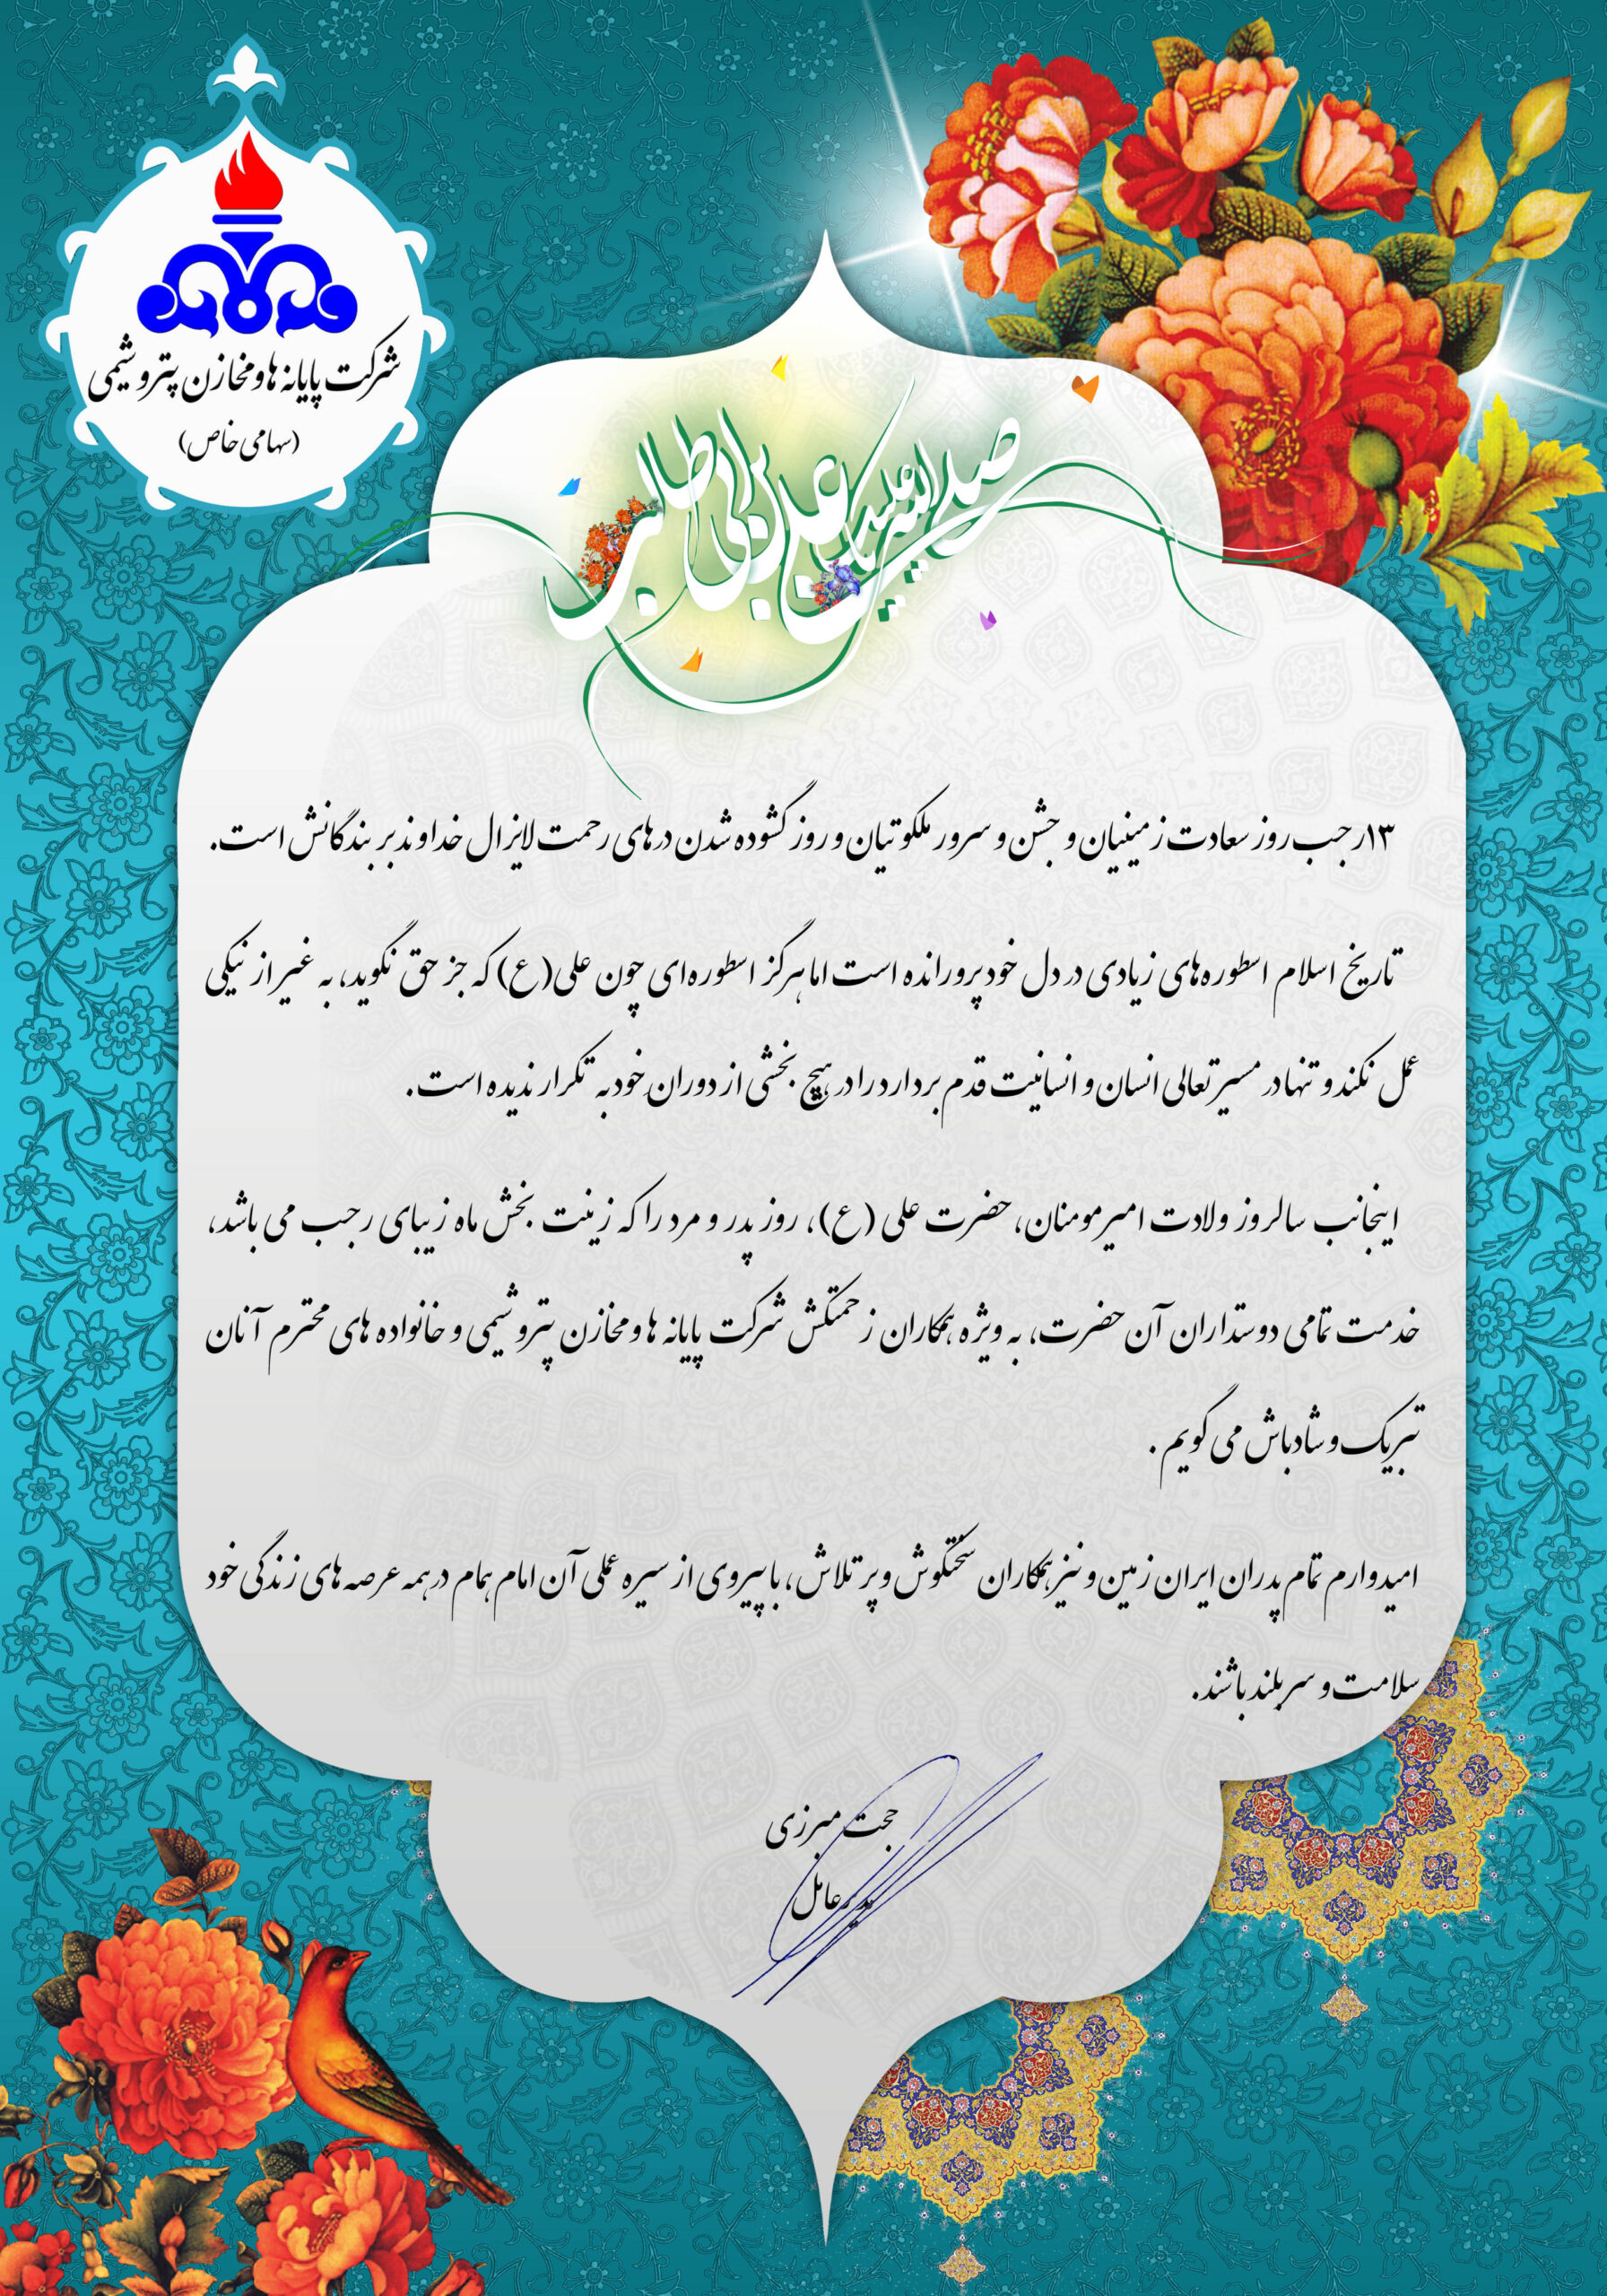 شرکت پایانه ها و مخازن پتروشیمی
(سهامی خاص)
صلی الله علیک یا علی بن ابی طالب
۱۳رجب روز سعادت زمینیان و جشن و سرور ملکوتیان و روز گشوده شدن درهای رحمت لایزال خداوند بر بندگانش است.
تاریخ اسلام اسطوره های زیادی در دل خود پرورانده است اما هرگز اسطوره ای چون علی(ع) که جز حق نگوید، به غیر از نیکی
عمل نکند و تنها در مسیر تعالی انسان و انسانیت قدم بردارد را در هیچ بخشی از دوران خود به تکرار ندیده است.
اینجانب سالروز ولادت امیرمومنان، حضرت علی (ع)، روز پدر و مرد را که زینت بخش ماه زیبای رجب می باشد،
خدمت تمامی دوستداران آن حضرت، به ویژه همکاران زحمتکش شرکت پایانه ها و مخازن پتروشیمی و خانواده های محترم آنان
تبریک و شادباش می گویم .
امیدوارم تمام پدران ایران زمین و نیز همکاران سختکوش و پر تلاش، با پیروی از سیره عملی آن امام همام در همه عرصه های زندگی خود
سلامت و سربلند باشند.
حجت میرزی
مدیرعامل